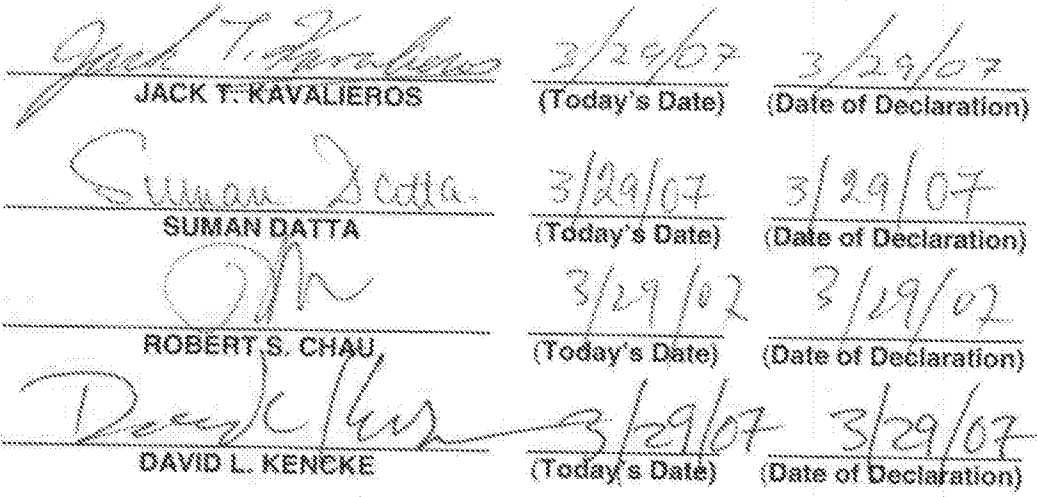 Jack T. Kavalieros 3/29/07 3/29/07
JACK T. KAVALIEROS (Today's Date) (Date of Declaration)
Suman Datta. 3/29/07 3/29/07
SUMAN DATTA (Today's Date) (Date of Declaration)
3/29/07 3/29/07
ROBERT S. CHAU (Today's Date) (Date of Declaration)
3/29/07 3/29/07
DAVID L. KENCKE (Today's Date) (Date of Declaration)